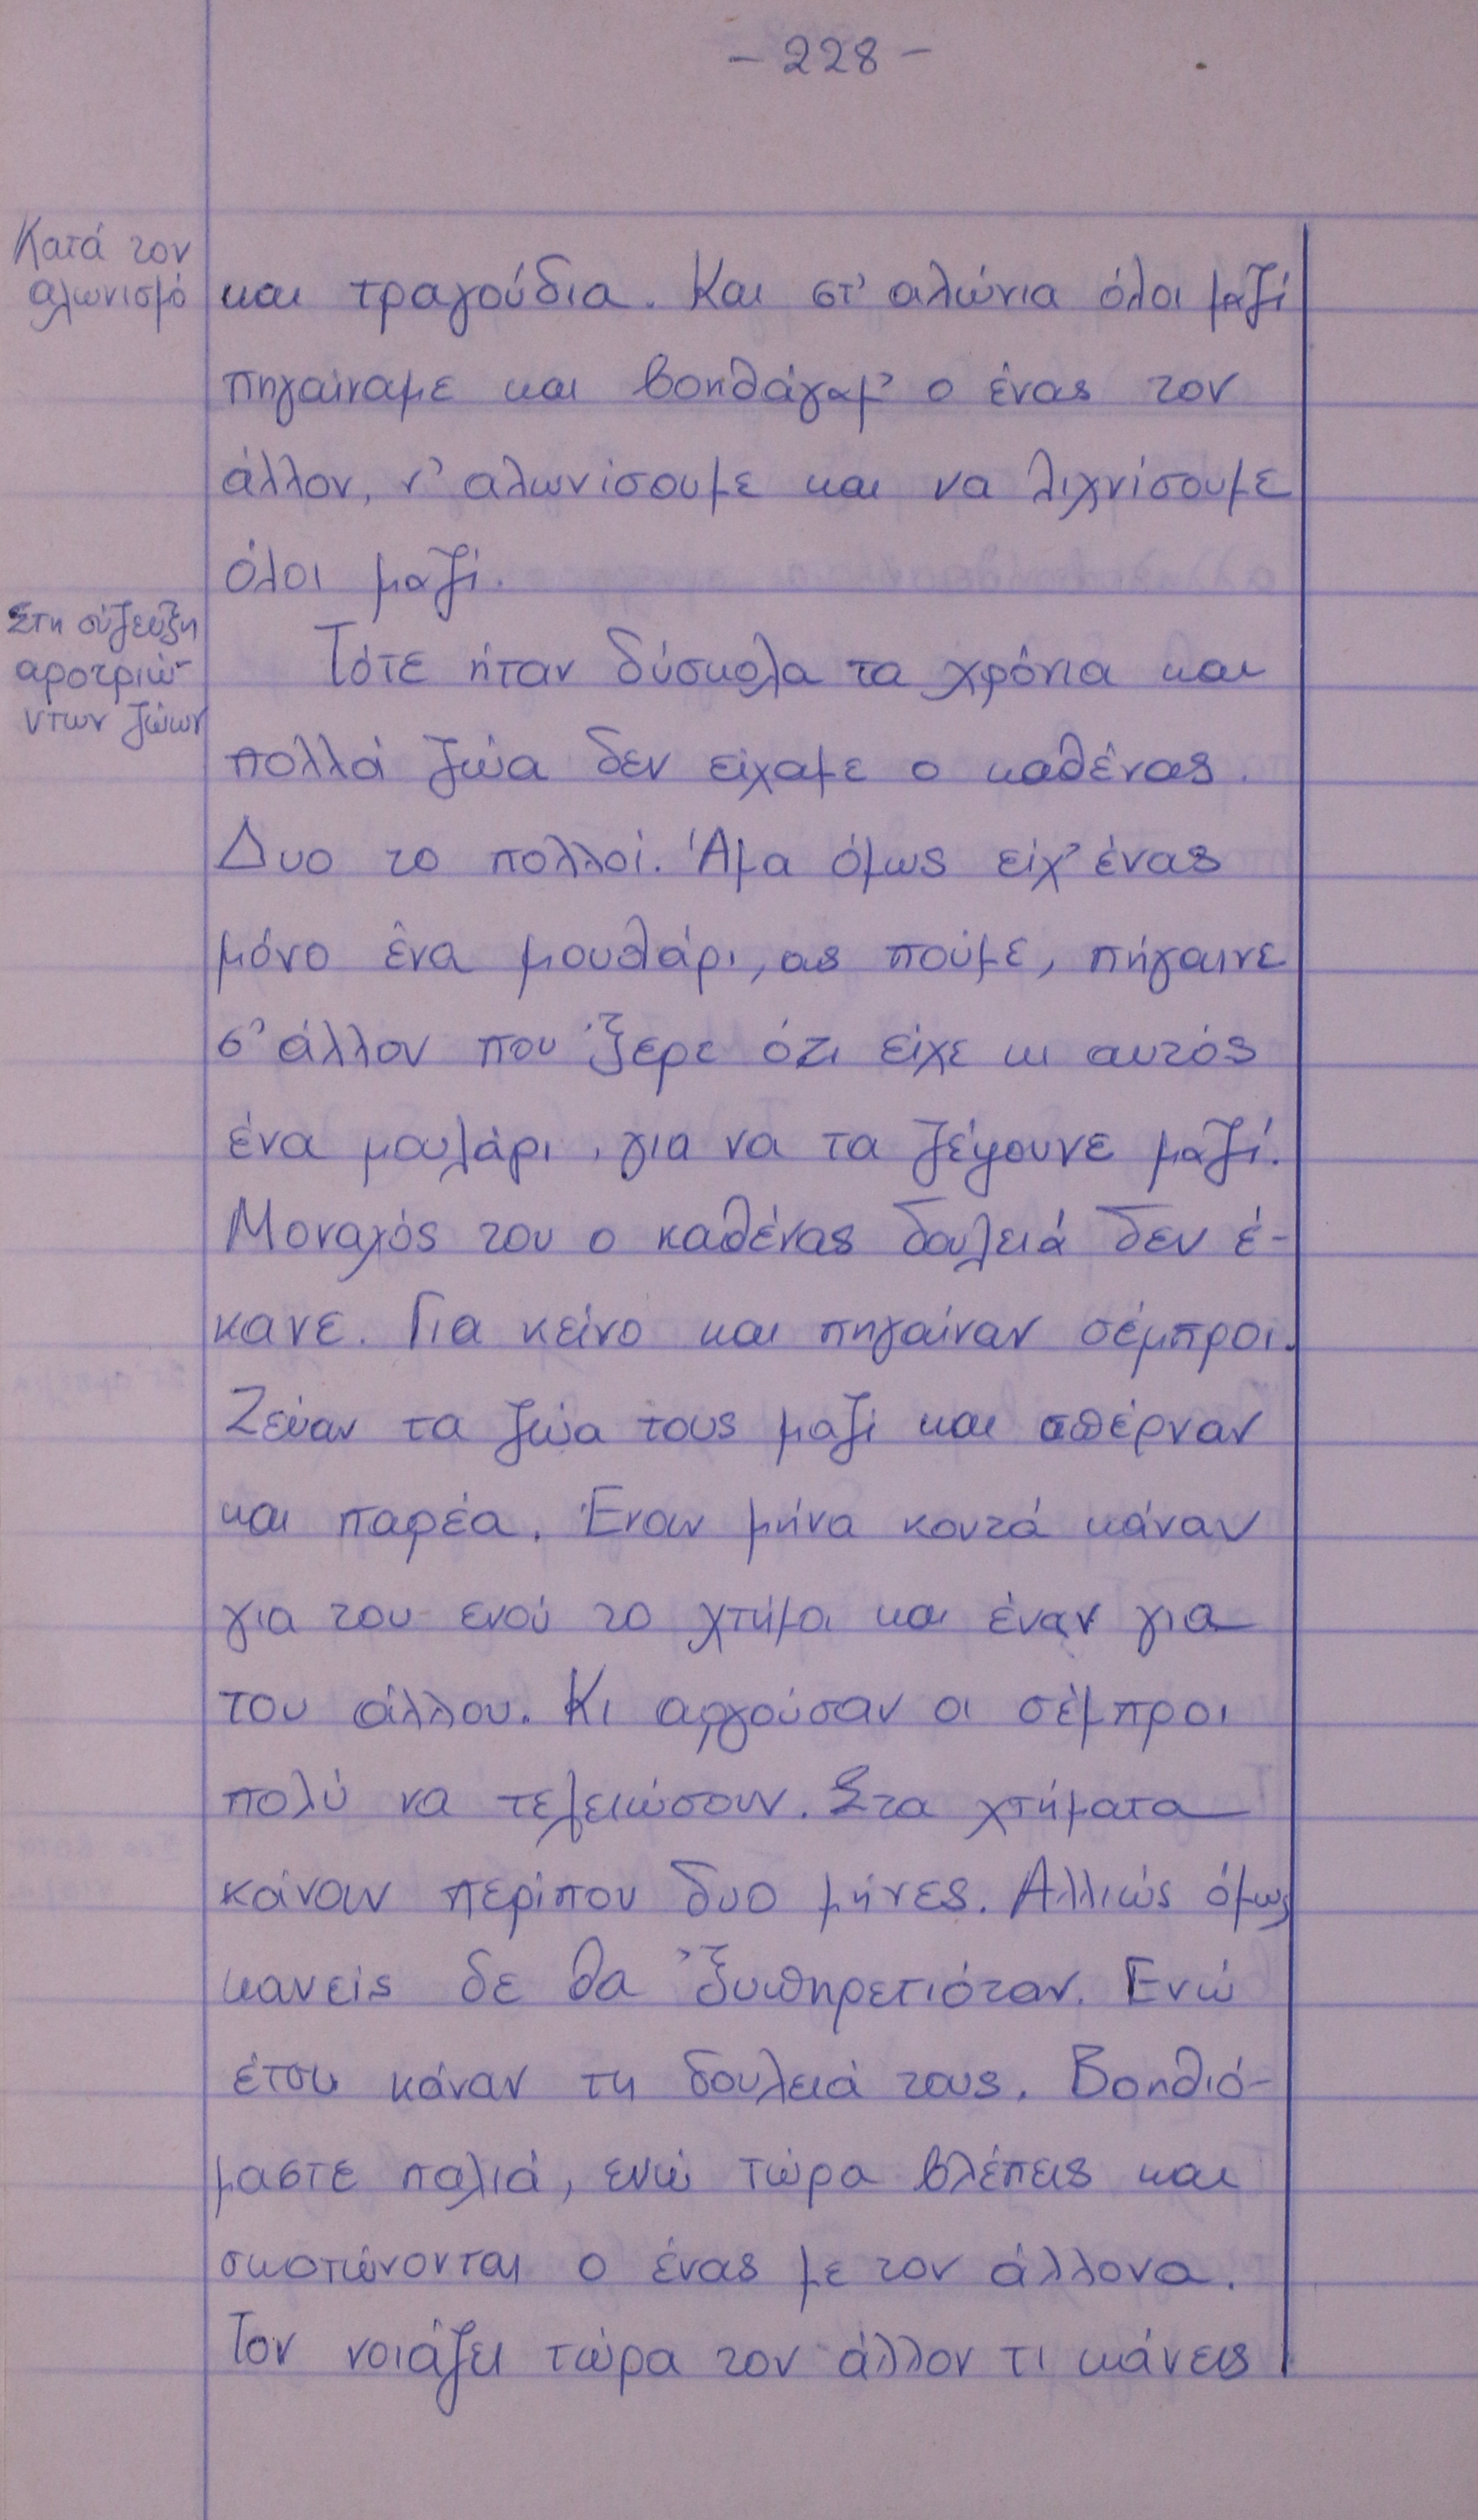 - 228 -
Κατά τον
αλωνισμό
και τραγούδια. Και στ' αλώνια όλοι μαζί
πηγαίναμε και βοηθάγαμ' ο ένας τον
άλλον, ν' αλωνίσουμε και να λιχνίσουμε
όλοι μαζί.
Στη σύζευξη
αροτριώ-
ντων ζώων
Τότε ήταν δύσκολα τα χρόνια και
πολλά ζώα δεν είχαμε ο καθένας.
Δυο το πολλοί. Άμα όμως είχ' ένας
μόνο ένα μουλάρι, ας πούμε, πήγαινε
σ' άλλον που 'ξερε ότι είχε κι αυτός
ένα μουλάρι, για να τα ζέψουνε μαζί.
Μοναχός του ο καθένας δουλειά δεν έ-
κανε. Για κείνο και πηγαίναν σέμπροι.
Ζεύαν τα ζώα τους μαζί και σπέρναν
και παρέα. Έναν μήνα κοντά κάναν
για του ενού το χτήμα και έναν για
του άλλου. Κι αργούσαν οι σέμπροι
πολύ να τελειώσουν. Στα χτήματα
κάνουν περίπου δυο μήνες. Αλλιώς όμως
κανείς δε θα 'ξυπηρετιόταν. Ενώ
έτσι κάναν τη δουλειά τους. Βοηθιό-
μαστε παλιά, ενώ τώρα βλέπεις και
σκοτώνονται ο ένας με τον άλλονα.
Τον νοιάζει τώρα τον άλλον τι κάνεις